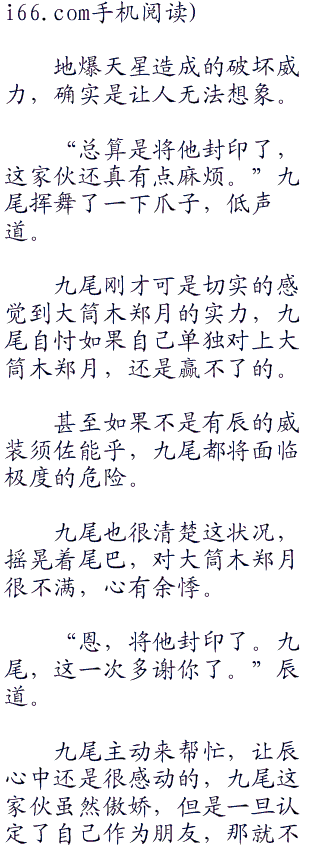 i66.com手机阅读)
地爆天星造成的破坏威
力，确实是让人无法想象。
“总算是将他封印了，
这家伙还真有点麻烦。”九
尾挥舞了一下爪子，低声
道。
九尾刚才可是切实的感
觉到大筒木郑月的实力，九
尾自忖如果自己单独对上大
筒木郑月，还是赢不了的。
甚至如果不是有辰的威
装须佐能乎，九尾都将面临
极度的危险。
九尾也很清楚这状况，
摇晃着尾巴，对大筒木郑月
很不满，心有余悸。
“恩，将他封印了。九
尾，这一次多谢你了。”辰
道。
九尾主动来帮忙，让辰
心中还是很感动的，九尾这
家伙虽然傲娇，但是一旦认
定了自己作为朋友，那就不